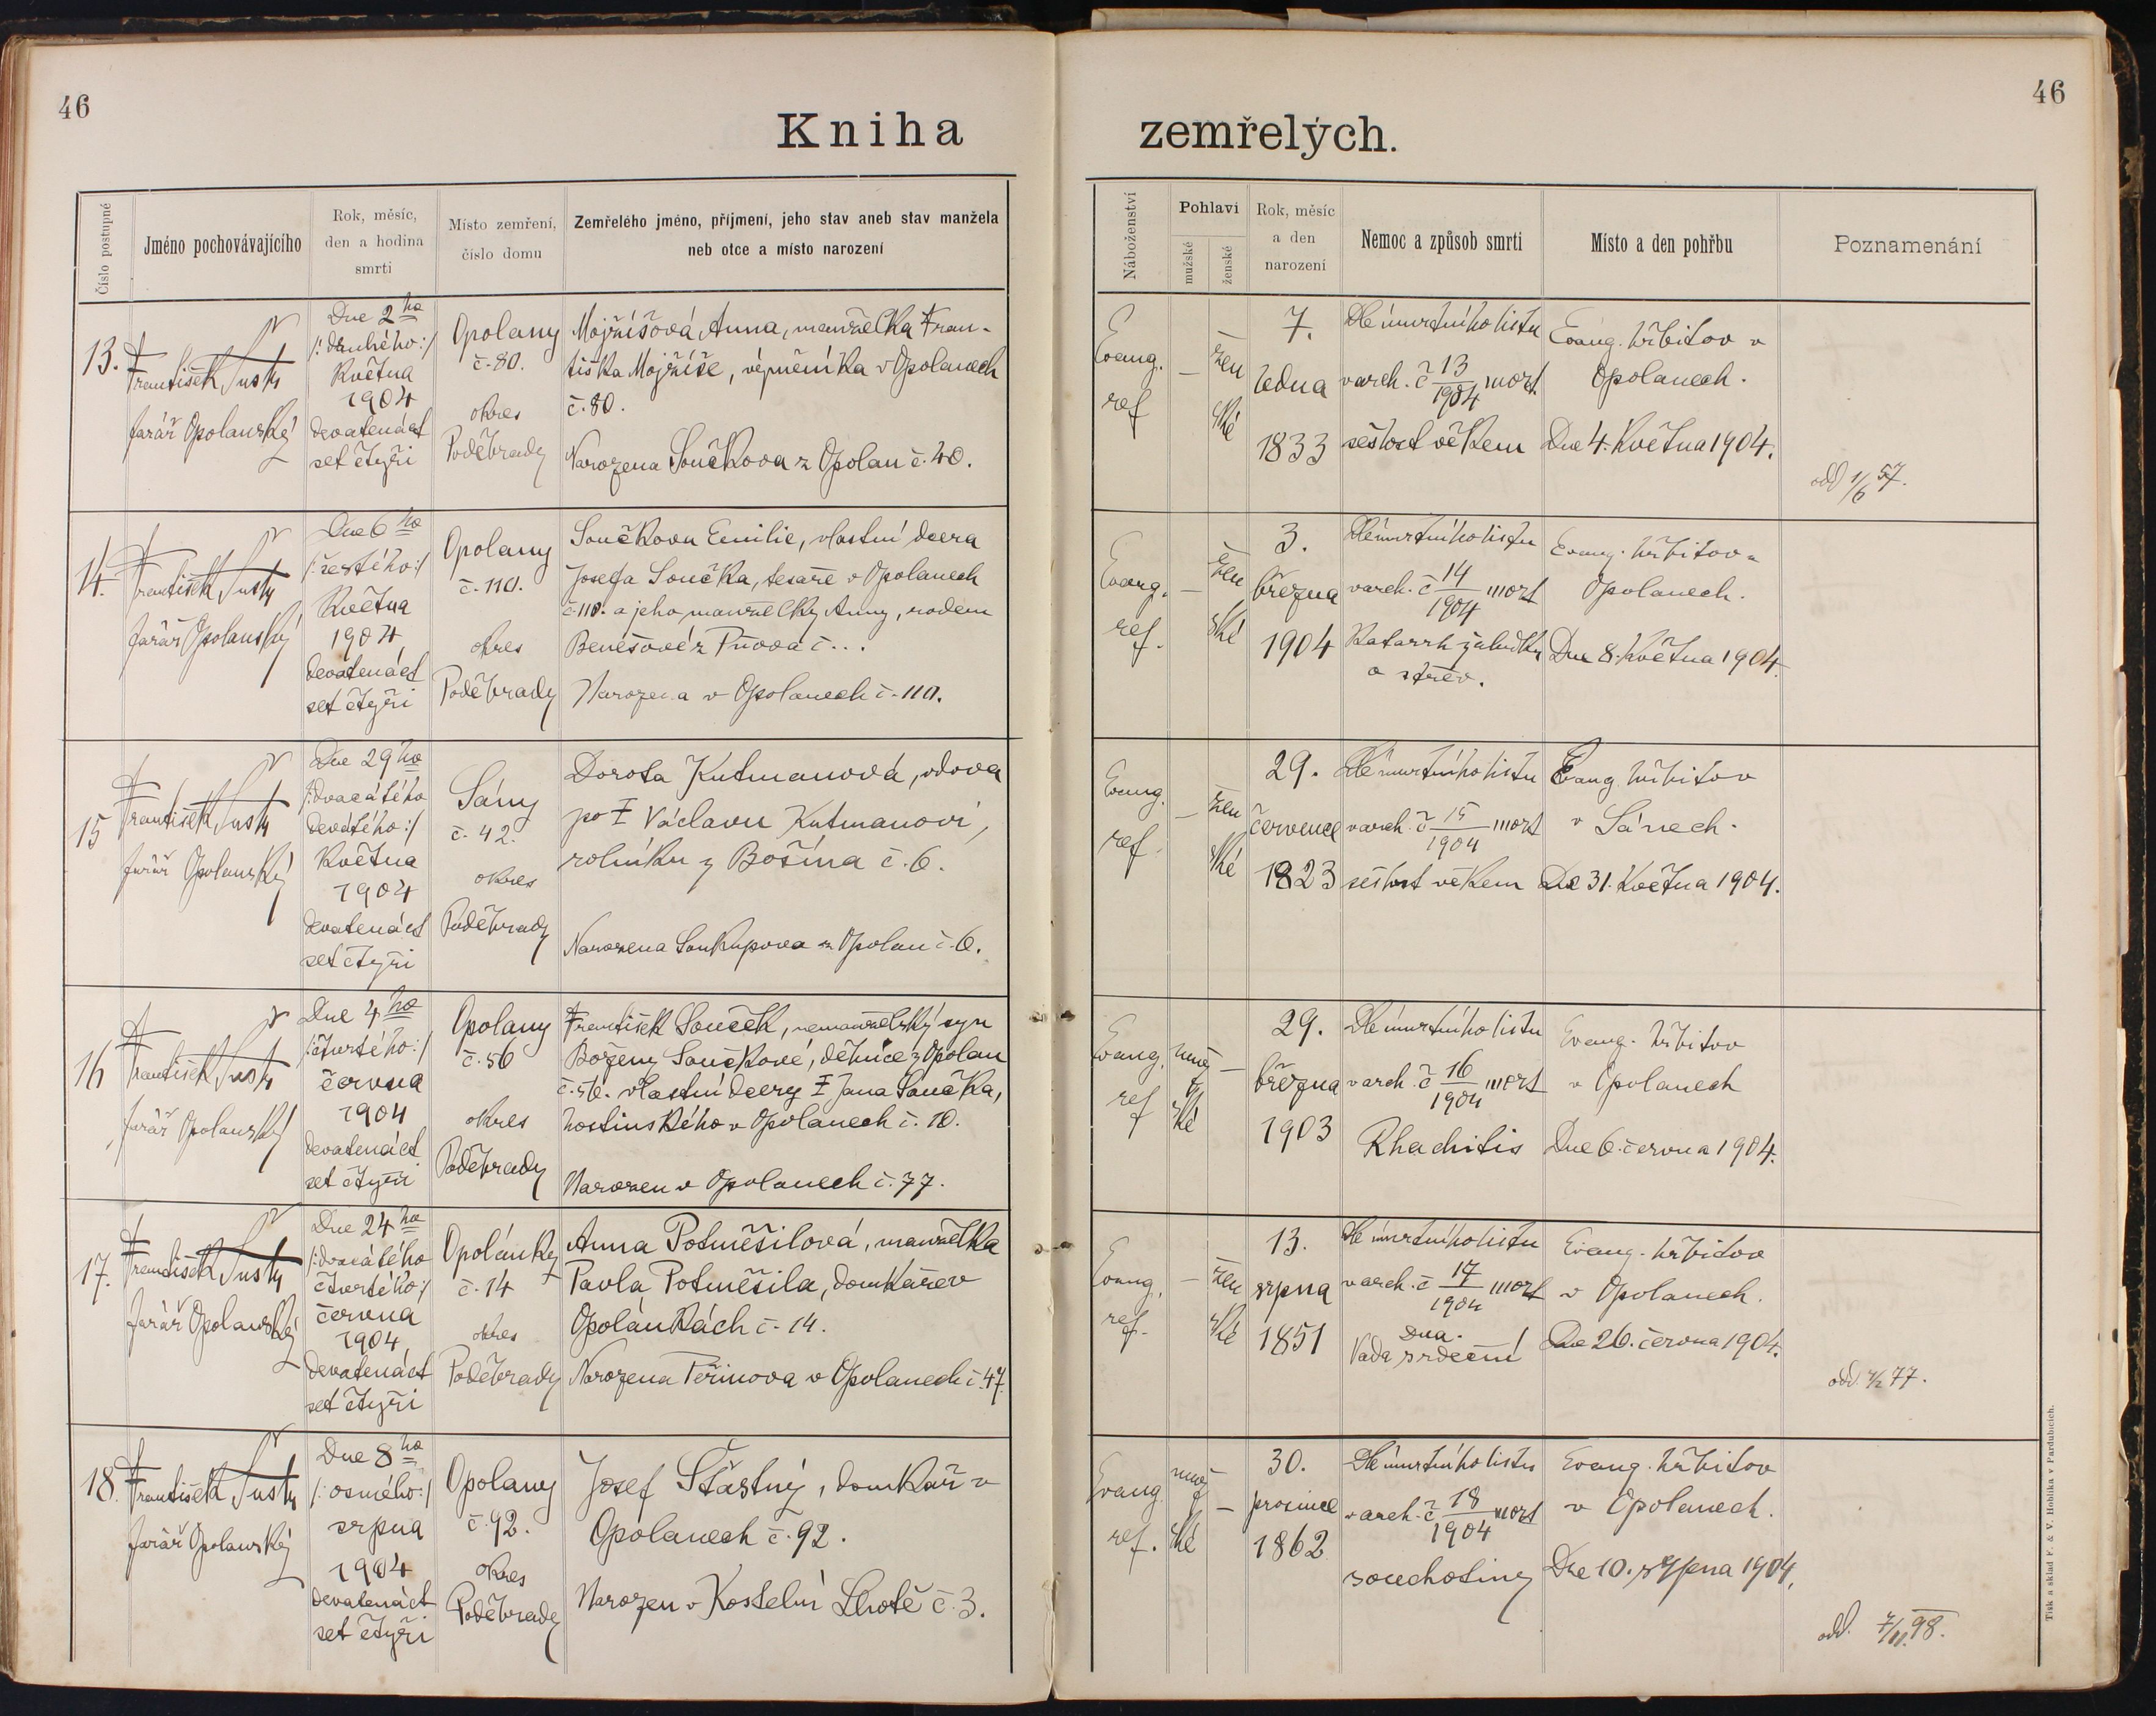 46
46
Kniha zemřelých.
Číslo postupné
Jméno pochovávajícího
Rok, měsíc,
den a hodina
smrti
Místo zemření,
číslo domu
Zemřelého jméno, příjmení, jeho stav aneb stav manžela
neb otce a místo narození
Náboženství
Pohlaví
mužské
ženské
Rok, měsíc
a den
narození
Nemoc a způsob smrti
Místo a den pohřbu
Poznamenání
13.
František Šustr
farář Opolanský
Dne 2ho
/:druhého:/
Května
1904
devatenáct
set čtyři
Opolany
č. 80.
okres
Poděbrady
Mojžíšová Anna, manželka Fran-
tiška Mojžíše, výměníka v Opolanech
č. 80.
Narozena Součkova z Opolan č. 40.
Evang.
ref
—
žen
ské
7.
ledna
1833
Dle úmrtního listu
v arch. č 13/1904 mort.
sešlost věkem
Evang. hřbitov v
Opolanech.
Dne 4. Května 1904.
odd 1/6 57.
14.
František Šustr
farář Opolanský
Dne 6ho
/:šestého:/
Května
1904
devatenáct
set čtyři
Opolany
č. 110.
okres
Poděbrady
Součkova Emilie, vlastní dcera
Josefa Součka, tesaře v Opolanech
č. 110. a jeho manželky Anny, rodem
Benešové z Pňova č...
Narozena v Opolanech č. 110.
Evang.
ref.
—
žen
ské
3.
března
1904
Dle úmrtního listu
v arch. č 14/1904 mort
Katarrh žaludku
a střev.
Evang. hřbitov v
Opolanech.
Dne 8. Května 1904.
15
František Šustr
farář Opolanský
Dne 29ho
/:dvacátého
devátého:/
Května
1904
devatenáct
set čtyři
Sány
č. 42.
okres
Poděbrady
Dorota Kutmanová, vdova
po ‡ Václavu Kutmanovi,
rolníku z Bošína č. 6.
Narozena Soukupova z Opolan č. 6.
Evang.
ref.
—
žen
ské
29.
července
1823
Dle úmrtního listu
v arch. č 15/1904 mort
sešlost věkem
Evang hřbitov
v Sánech.
Dne 31. Května 1904.
16
František Šustr
farář Opolanský
Dne 4ho
/:čtvrtého:/
června
1904
devatenáct
set čtyři
Opolany
č. 56
okres
Poděbrady
František Souček, nemanželský syn
Boženy Součkové, dělnice z Opolan
č. 56. vlastní dcery ‡ Jana Součka,
hostinského v Opolanech č. 10.
Narozen v Opolanech č. 77.
Evang.
ref
muž
ské
—
29.
března
1903
Dle úmrtního listu
v arch. č 16/1904 mort
Rhachitis
Evang. hřbitov
v Opolanech
Dne 6. června 1904.
17.
František Šustr
farář Opolanský
Dne 24ho
/:dvacátého
čtvrtého:/
června
1904
devatenáct
set čtyři
Opolánky
č. 14
okres
Poděbrady
Anna Potměšilová, manželka
Pavla Potměšila, domkáře v
Opolánkách č. 14.
Narozena Peřinova v Opolanech č. 47.
Evang.
ref.
—
žen
ské
13.
srpna
1851
Dle úmrtního listu
v arch. č 17/1904 mort
Dna. —/
Vada srdeční
Evang. hřbitov
v Opolanech.
Dne 26. června 1904.
77.
18.
František Šustr
farář Opolanský
Dne 8ho
/:osmého:/
srpna
1904
devatenáct
set čtyři
Opolany
č. 92.
okres
Poděbrady
Josef Šťastný, domkář v
Opolanech č. 92.
Narozen v Kostelní Lhotě č. 3.
Evang.
ref.
muž
ské
—
30.
prosince
1862
Dle úmrtního listu
v arch. č 18/1904 mort
souchotiny
Evang. hřbitov
v Opolanech.
Dne 10. srpna 1904.
odd. 7/11. 98.
Tisk a sklad F. & V. Hoblíka v Pardubicích.